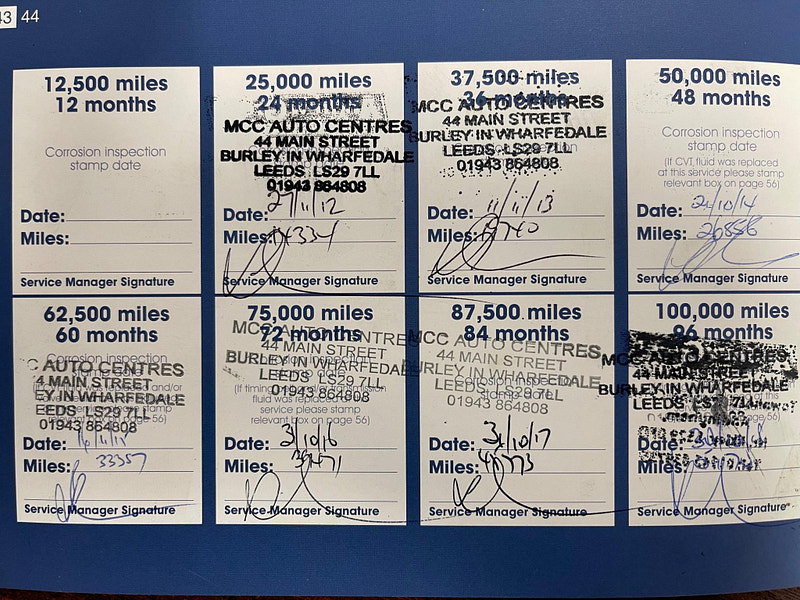 43 44
12,500 miles
12 months
Corrosion inspection
stamp date
Date:
Miles:
Service Manager Signature
25,000 miles
24 months
MCC AUTO CENTRES
44 MAIN STREET
BURLEY IN WHARFEDALE
LEEDS LS29 7LL
01943 864808
Date: 27/11/12
Miles: 14334
Service Manager Signature
37,500 miles
36 months
MCC AUTO CENTRES
44 MAIN STREET
BURLEY IN WHARFEDALE
LEEDS LS29 7LL
01943 864808
Date: 11/11/13
Miles:
Service Manager Signature
50,000 miles
48 months
Corrosion inspection
stamp date
(If CVT fluid was replaced
at this service please stamp
relevant box on page 56)
Date: 21/10/14
Miles: 26856
Service Manager Signature
62,500 miles
60 months
Corrosion inspection
C AUTO CENTRES
4 MAIN STREET
EY IN WHARFEDALE
EEDS LS29 7LL
01943 864808
Date:
Miles: 33357
Service Manager Signature
75,000 miles
72 months
MCC AUTO CENTRE
44 MAIN STREET
BURLEY IN WHARFEDALE
LEEDS LS29 7LL
01943 864808
(If timing
fluid was replaced
service please stamp
relevant box on page 56)
Date: 31/10/16
Miles: 39471
Service Manager Signature
87,500 miles
84 months
MCC AUTO CENTRES
44 MAIN STREET
BURLEY IN WHARFEDALE
LEEDS LS29 7LL
01943 864808
Date: 31/10/17
Miles:
Service Manager Signature
100,000 miles
96 months
MCC AUTO CENTRES
44 MAIN STREET
BURLEY IN WHARFEDALE
LEEDS LS29 7LL
Date:
Miles:
Service Manager Signature